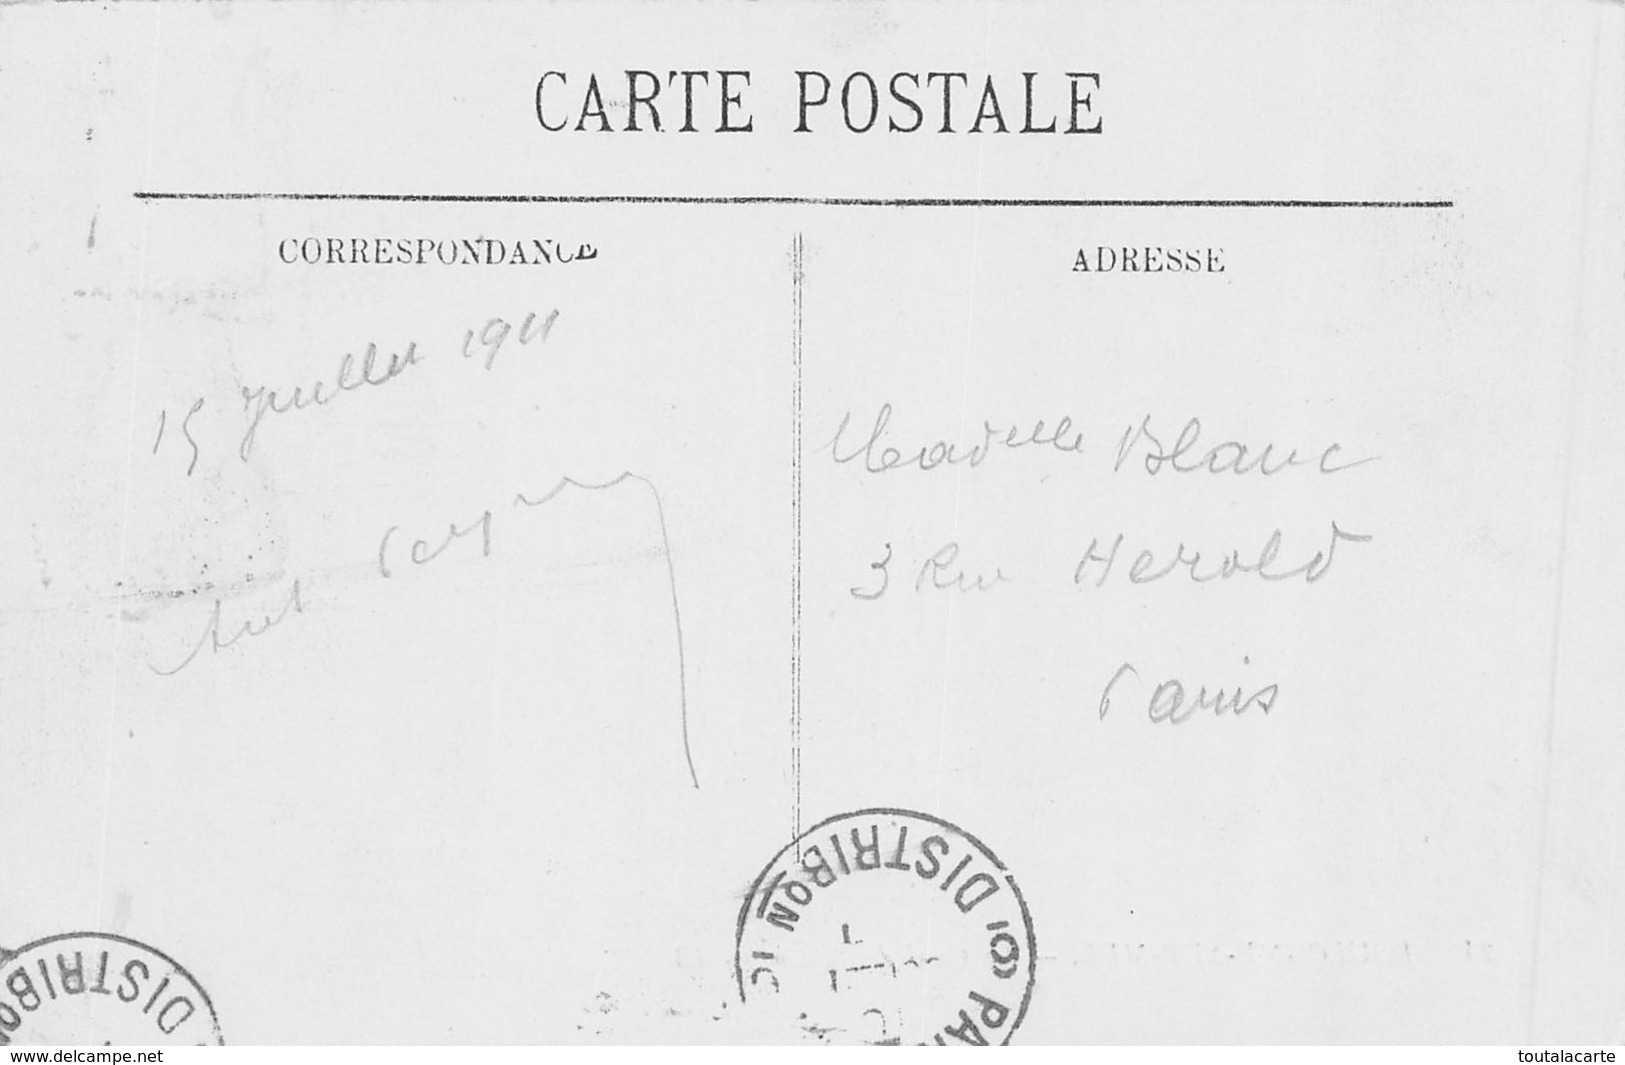 CARTE POSTALE
CORRESPONDANCE
ADRESSE
15 Juillet 1911
Madelle Blanc
3 Rue Herold
Paris
DISTRIBON
PAR
DISTRIBO
delcampe.net
toutalacarte